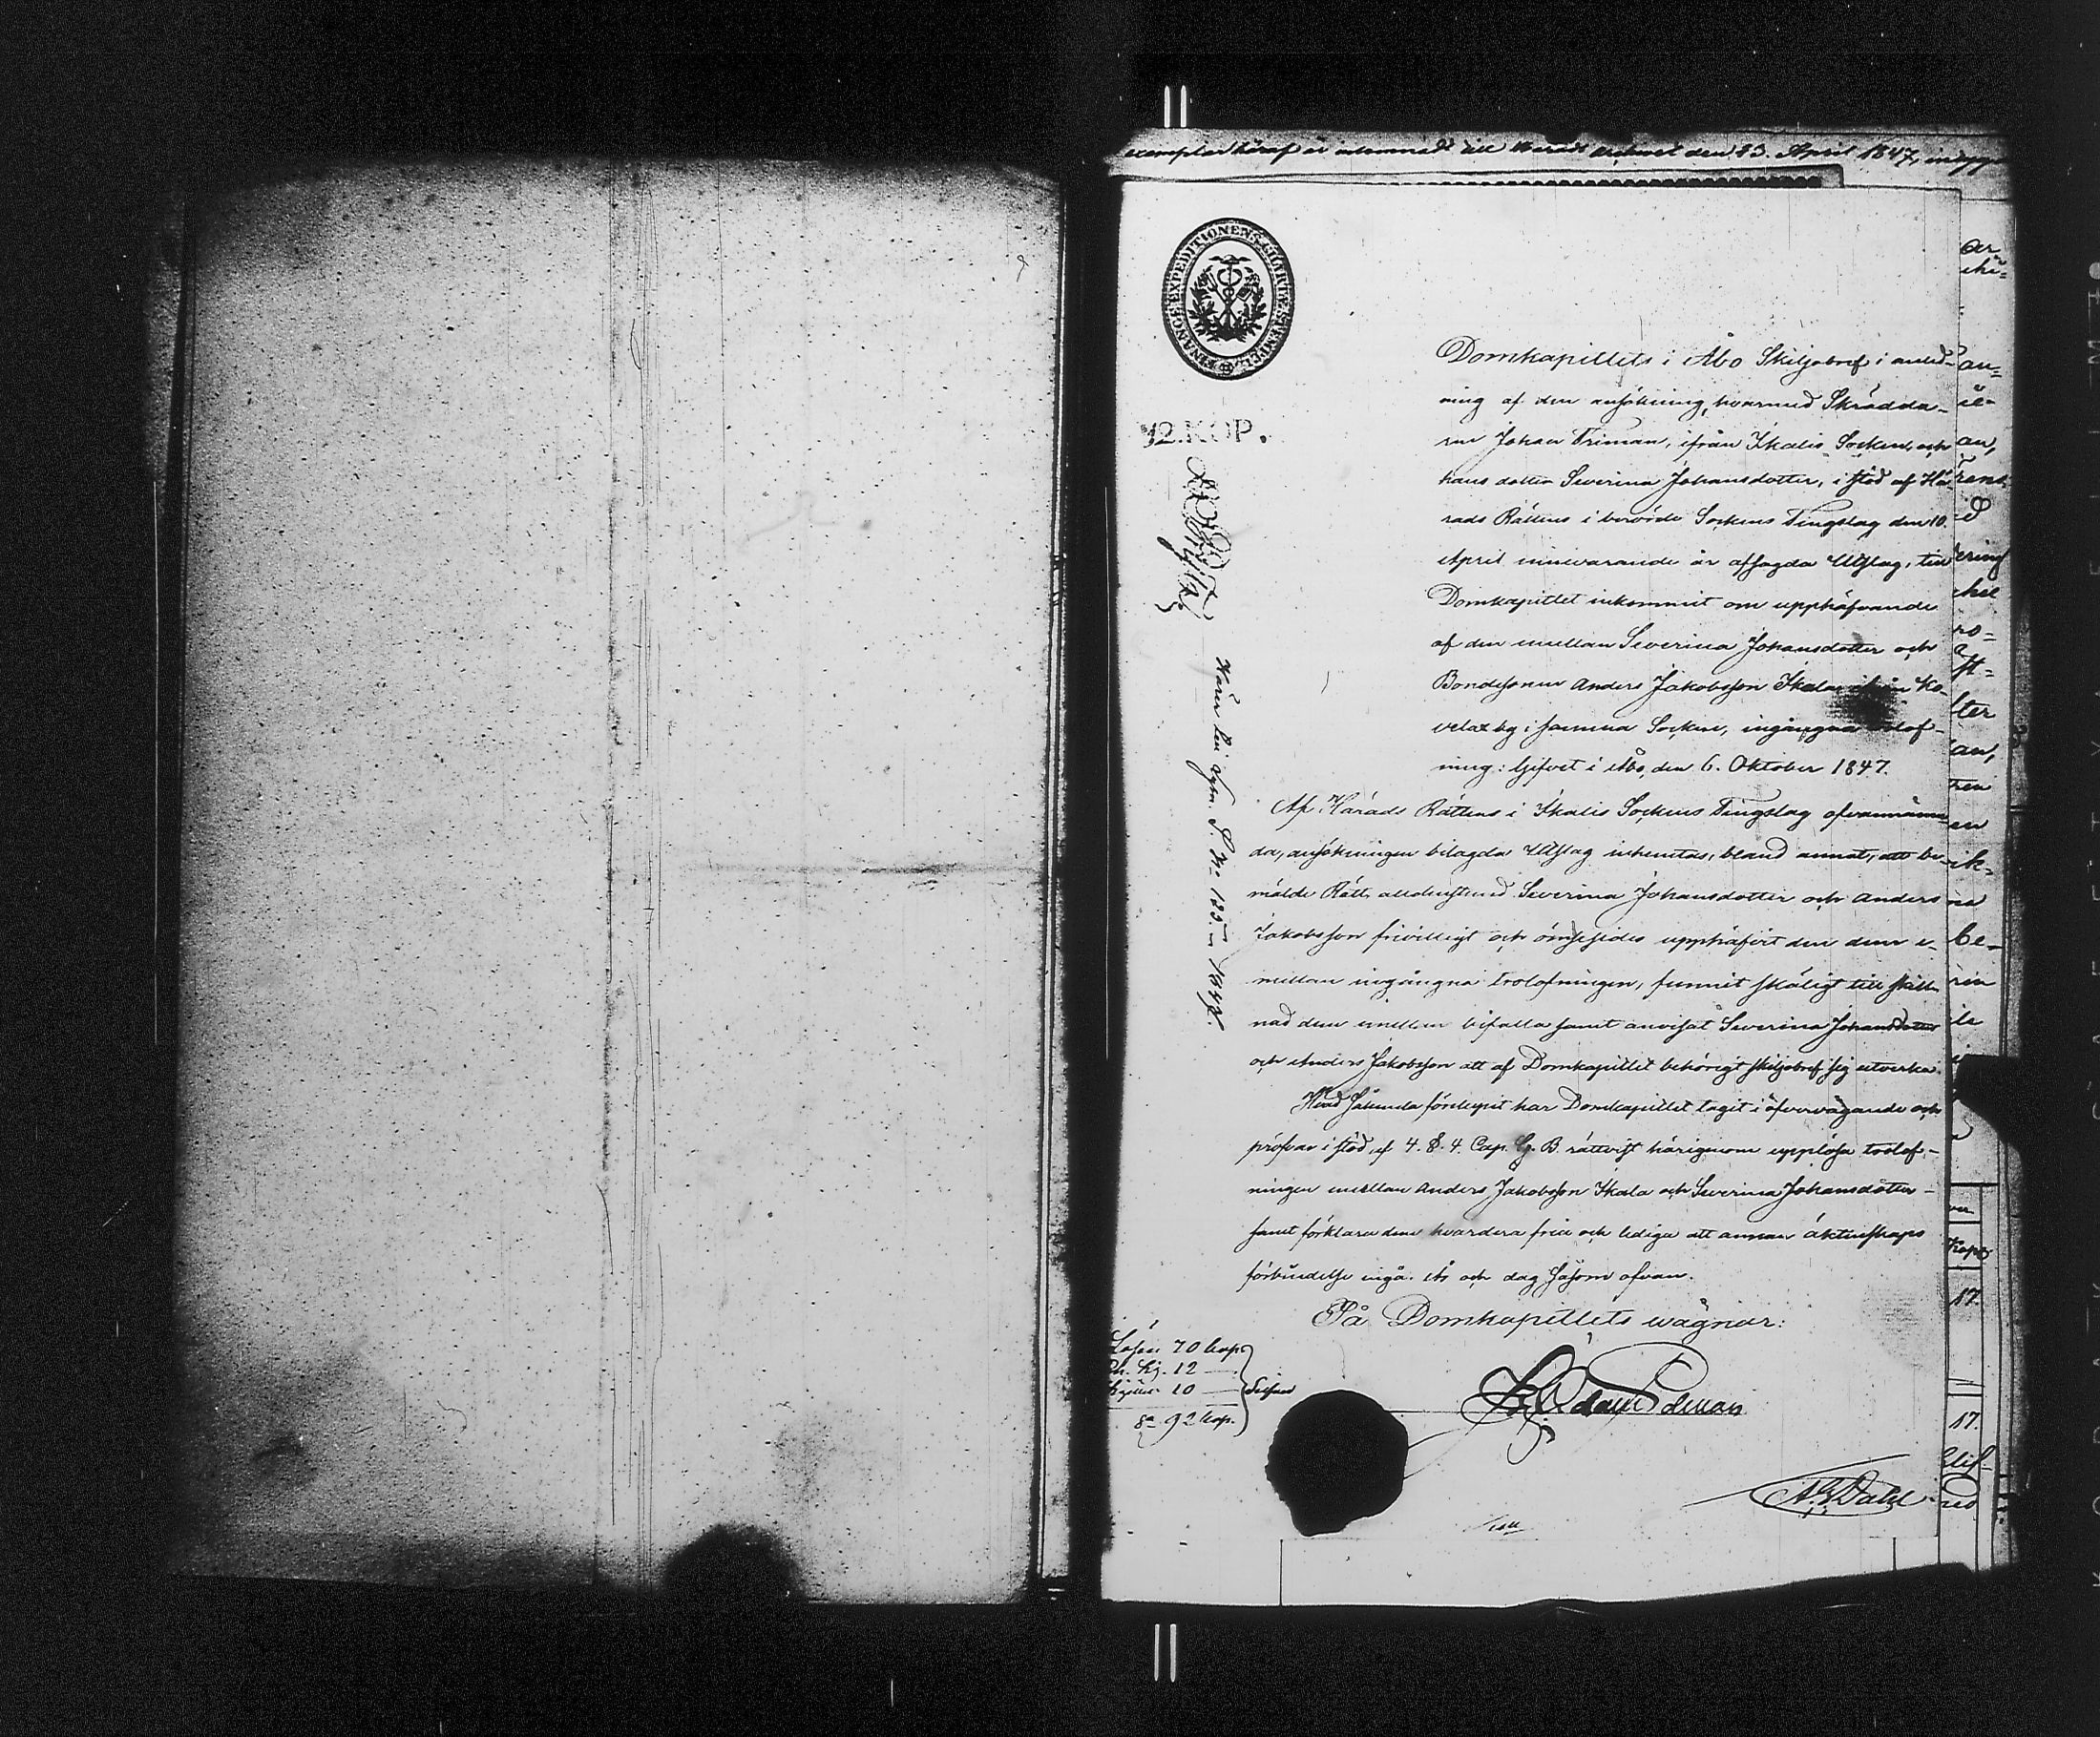 exemplar häraf är inlemnadt till Härads Archivet den 23. April 1847, 
FINANCE EXPEDITIONENS CHARTÆ STEMPEL
12. KOP.
Domkapitlets i Åbo Skiljobref i anled-
ning af den ansökning, hvarmed Skrädda-
ren Johan Triman, ifrån Ikalis Socken, och
hans dotter Severina Johansdotter, i stöd af Hä-
rads Rättens i berörde Sockens Tingslag den 10.
April innevarande år afsagda Utslag, till
Domkapitlet inkommit om upphäfvande
af den emellan Severina Johansdotter och
Bondesonen Anders Jakobsson Skala ifrån Ko-
velax by i samma Socken, ingångna trolof-
ning: Gifvet i Åbo, den 6. Oktober 1847.
Af Härads Rättens i Ikalis Sockens Tingslag ofvannämn-
da, ansökningen bilagda Utslag inhemtas, bland annat, att be-
mälde Rätt, alldenstund Severina Johansdotter och Anders
Jakobsson frivilligt och ömsesides upphäfvit den dem e-
mellan ingångna trolofningen, funnit skäligt till skill-
nad dem emellan bifalla samt anvisat Severina Johansdotter
och Anders Jakobsson att af Domkapitlet behörigt skiljobref sig utverka.
Hvad sålunda förelupit har Domkapitlet tagit i öfvervägande och
pröfvar i stöd af 4. §. 4. Cap. G. B. rättvist härigenom upplösa trolof-
ningen emellan Anders Jakobsson Skala och Severina Johansdotter
samt förklara dem hvardera fria och lediga att annan äktenskaps
förbindelse ingå. År och dag såsom ofvan.
På Domkapitlets wägnar:
Lösen 70 kop.
12
10
Sa 92 kop.
A. G. Dahl